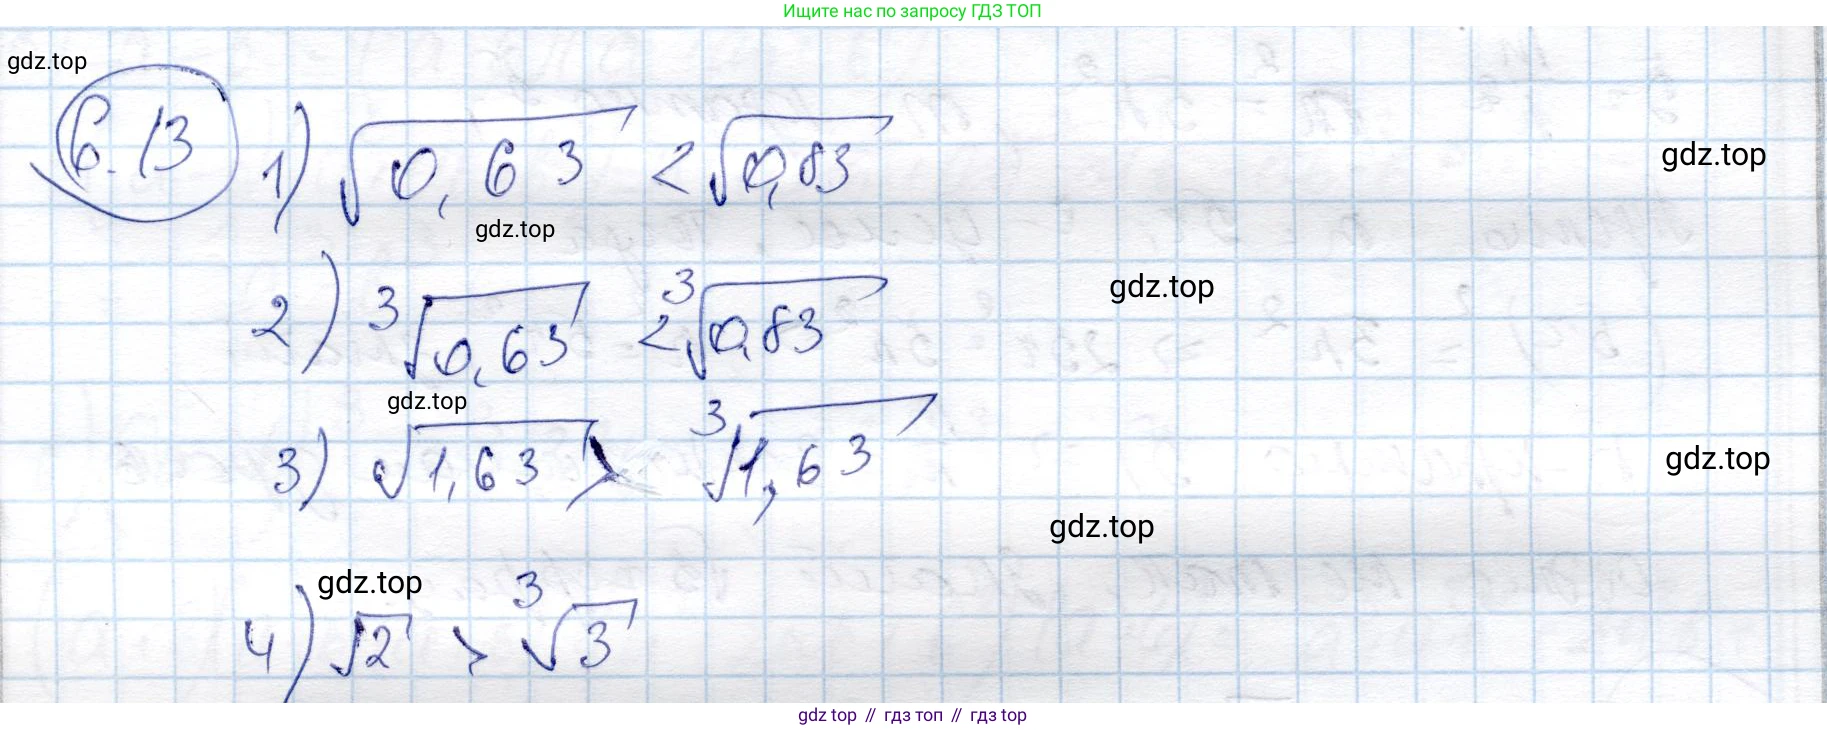 Ищите нас по запросу ГДЗ ТОП
gdz.top
6.13 1) √0,63 < √0,83
gdz.top
gdz.top
2) ³√0,63 < ³√0,83
gdz.top
gdz.top
3) √1,63 > ³√1,63
gdz.top
gdz.top
gdz.top
4) √2 > ³√3
gdz top // гдз топ // gdz top